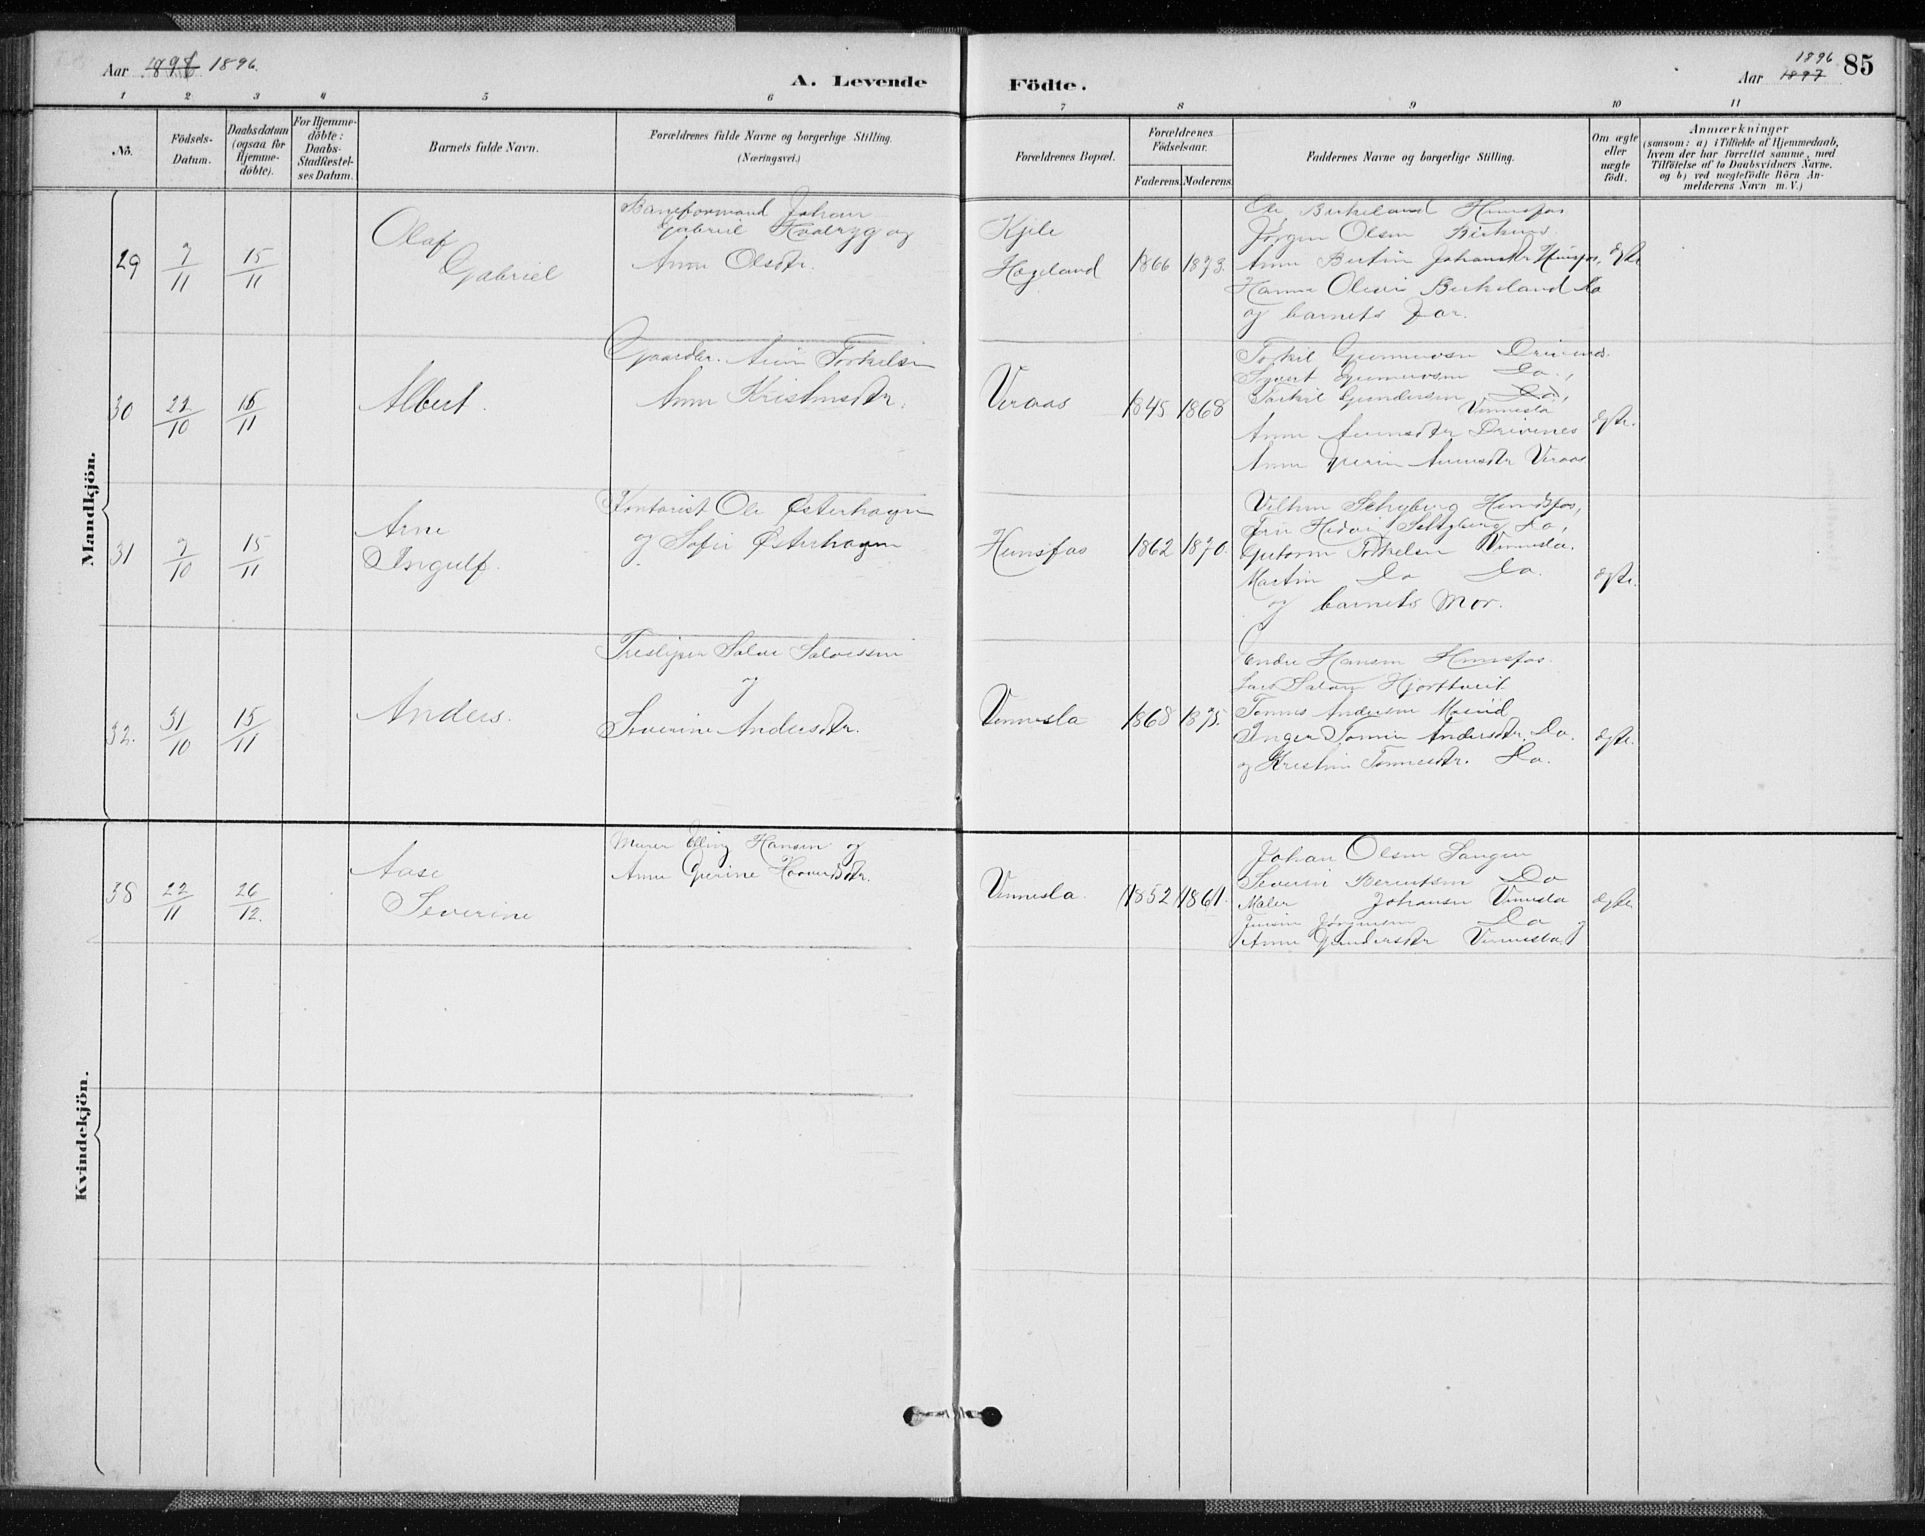 Aar 1896 1896.
A. Levende
1 2 3 4 5 6
No.
Födsels-Datum.
Daabsdatum (ogsaa for Hjemme-döbte).
For Hjemme-döbte: Daabs-Stadfæstel-ses Datum.
Barnets fulde Navn.
Forældrenes fulde Navne og borgerlige Stilling.
(Næringsvei.)
Mandkjön.
29 7/11 15/11
Olaf
Gabriel
Baneformand Johan
Gabriel Kvalryg og
Anne Olsdtr.
30 21/10 15/11
Albert.
Gaardbr. Torkelsen
Anne Kristensdtr.
31 7/10 15/11
Arne
Ingulf.
Kontorist Ole Østerhagen
og Sofie Østerhagen
32. 31/10 15/11
Anders.
Tresliper Salve Salvessen
og
Severine Andersdtr.
Kvindekjön.
38 22/11 26/12.
Aase
Severine
Murer Elling Hansen og
Anne Gurine Haaversdtr.
1896
Aar 1897 85
Födte.
7 8 9 10 11
Forældrenes Bopæl.
Forældrenes Födselsaar.
Faderens. Moderens.
Faddernes Navne og borgerlige Stilling.
Om ægte eller uægte födt.
Anmærkninger
(saasom: a) i Tilfælde af Hjemmedaab,
hvem der har forrettet samme, med
Tilföielse af to Daabsvidners Navne,
og b) ved uægtefödte Börn An-
melderens Navn m. V.)
Kjile
Hægeland
1866 1873.
Ole Birkeland Hunsfos
Jørgen Olsen
Anne Bertine Johansdtr Hunsfos,
Hanne Olivie Birkeland Do
og barnets Far.
Ægte
Veraas
1845 1868
Torkil Gunnersen Drivenes.
Syvert Gunnersen Do.,
Torkil Gundersen Do,
Vennesla
Anne Drivenes
Anne Veraas
Ægte.
Hunsfos
1862 1870.
Vilhem Schyberg Hundsfos,
Fru Schyberg Do,
Guttorm Torkelsen Vennesla.
Martin Do Do.
og barnets Mor.
Ægte.
Vennesla
1868 1875.
Endre Hansen Hunsfos.
Lars Hjorttveit
Tomas Andersen Moseid
Inger Tomine Andersdtr. Do.
og Kristine Tønnesdtr. Do.
Ægte.
Vennesla.
1852 1861.
Johan Olsen Sangen
Severin Berentsen Do
Maler Johansen Vennesla
Jørgensen Do og
Anne Gundersdtr Vennesla
Ægte